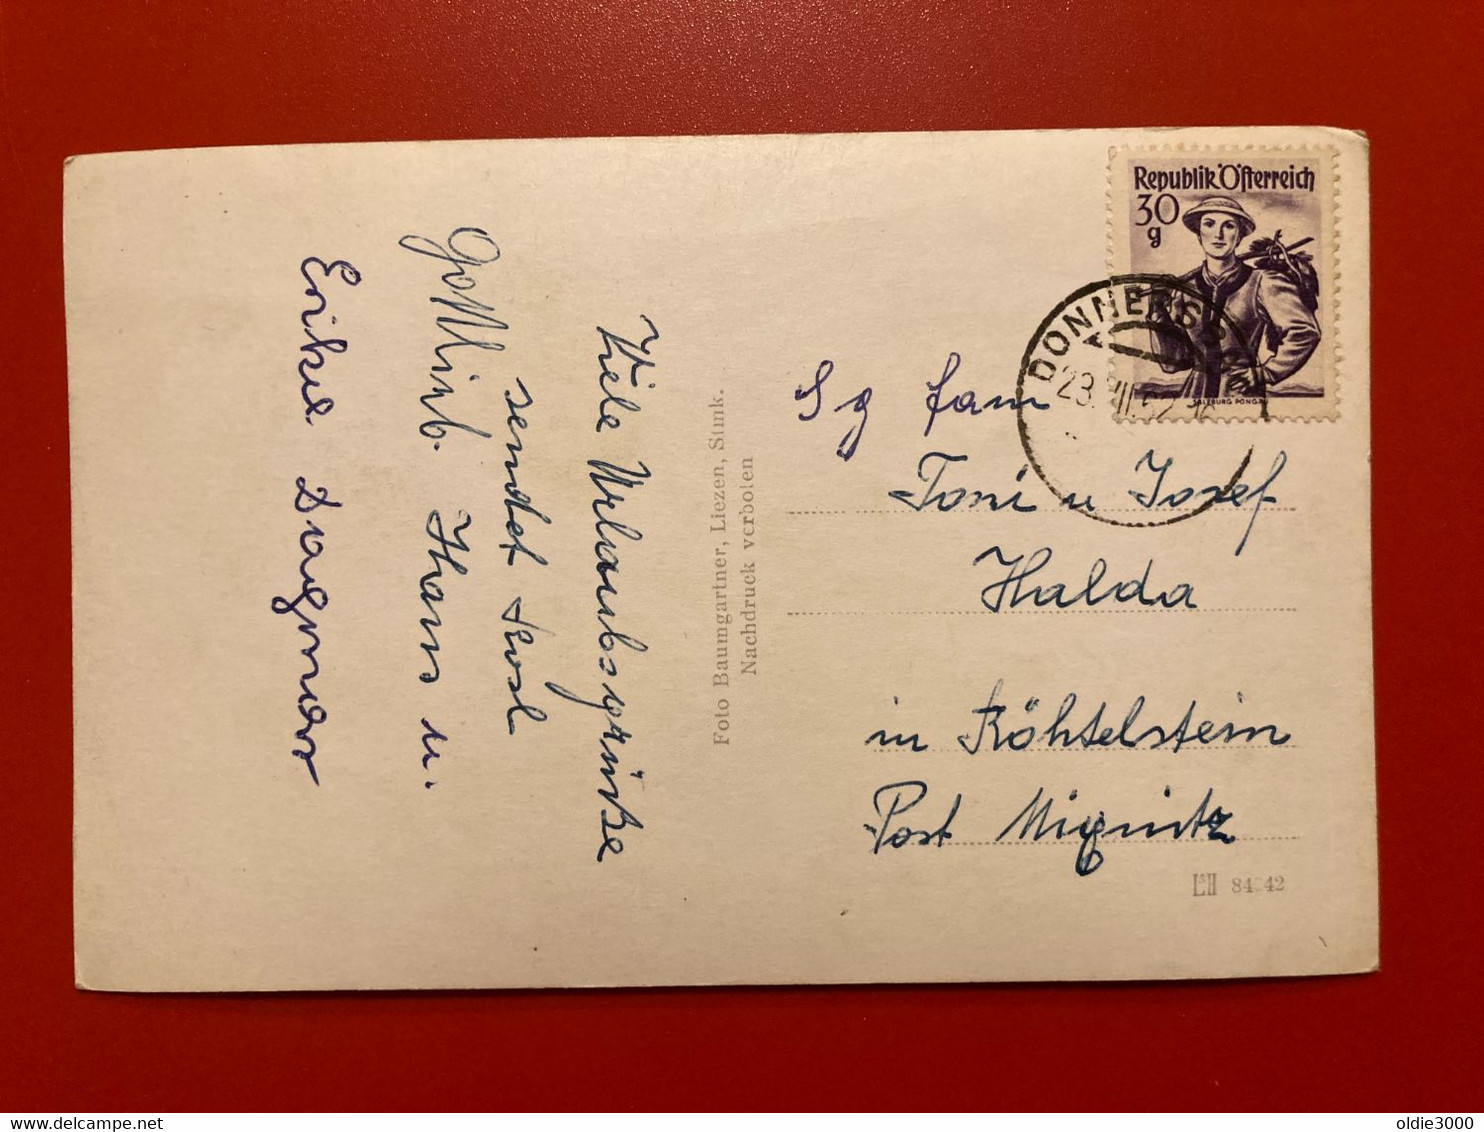 Viele Urlaubsgrüße
sendet
Gottlieb. Hans u.
Erika Dagmar
Foto Baumgartner, Liezen, Stmk.
Nachdruck verboten
Republik Österreich
30
g
SALZBURG PONGAU
DONNERSB
23. VII. 52
Sg Fam
Toni u Josef
Halda
in Röhtelstein
Post Mixnitz
oldie3000